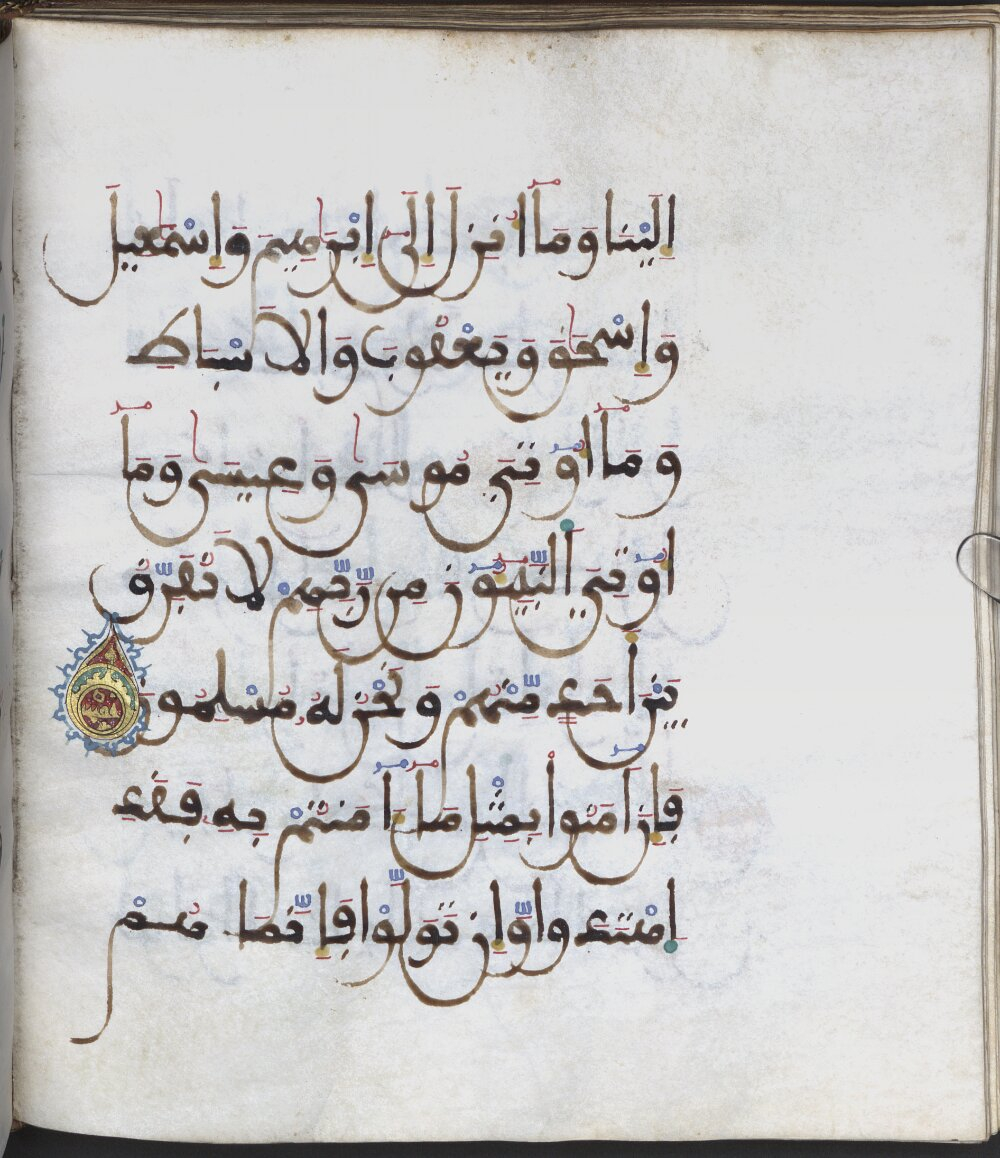 إِلَيْنَا وَمَآ أُنزِلَ إِلَىٰٓ إِبْرَٰهِيمَ وَإِسْمَٰعِيلَ
وَإِسْحَٰقَ وَيَعْقُوبَ وَالَاسْبَاطِ
وَمَآ أُوتِيَ مُوسَىٰ وَعِيسَىٰ وَمَآ
أُوتِيَ النَّبِيـُٔونَ مِن رَّبِّهِمْ لَا نُفَرِّقُ
بَيْنَ أَحَدٍ مِّنْهُمْ وَنَحْنُ لَهُ مُسْلِمُونَ
فَإِنَ اٰمَنُوا بِمِثْلِ مَآ ءَامَنتُم بِهِ فَقَدِ
اِهْتَدَوا وَّإِن تَوَلَّوْا فَإِنَّمَا هُمْ